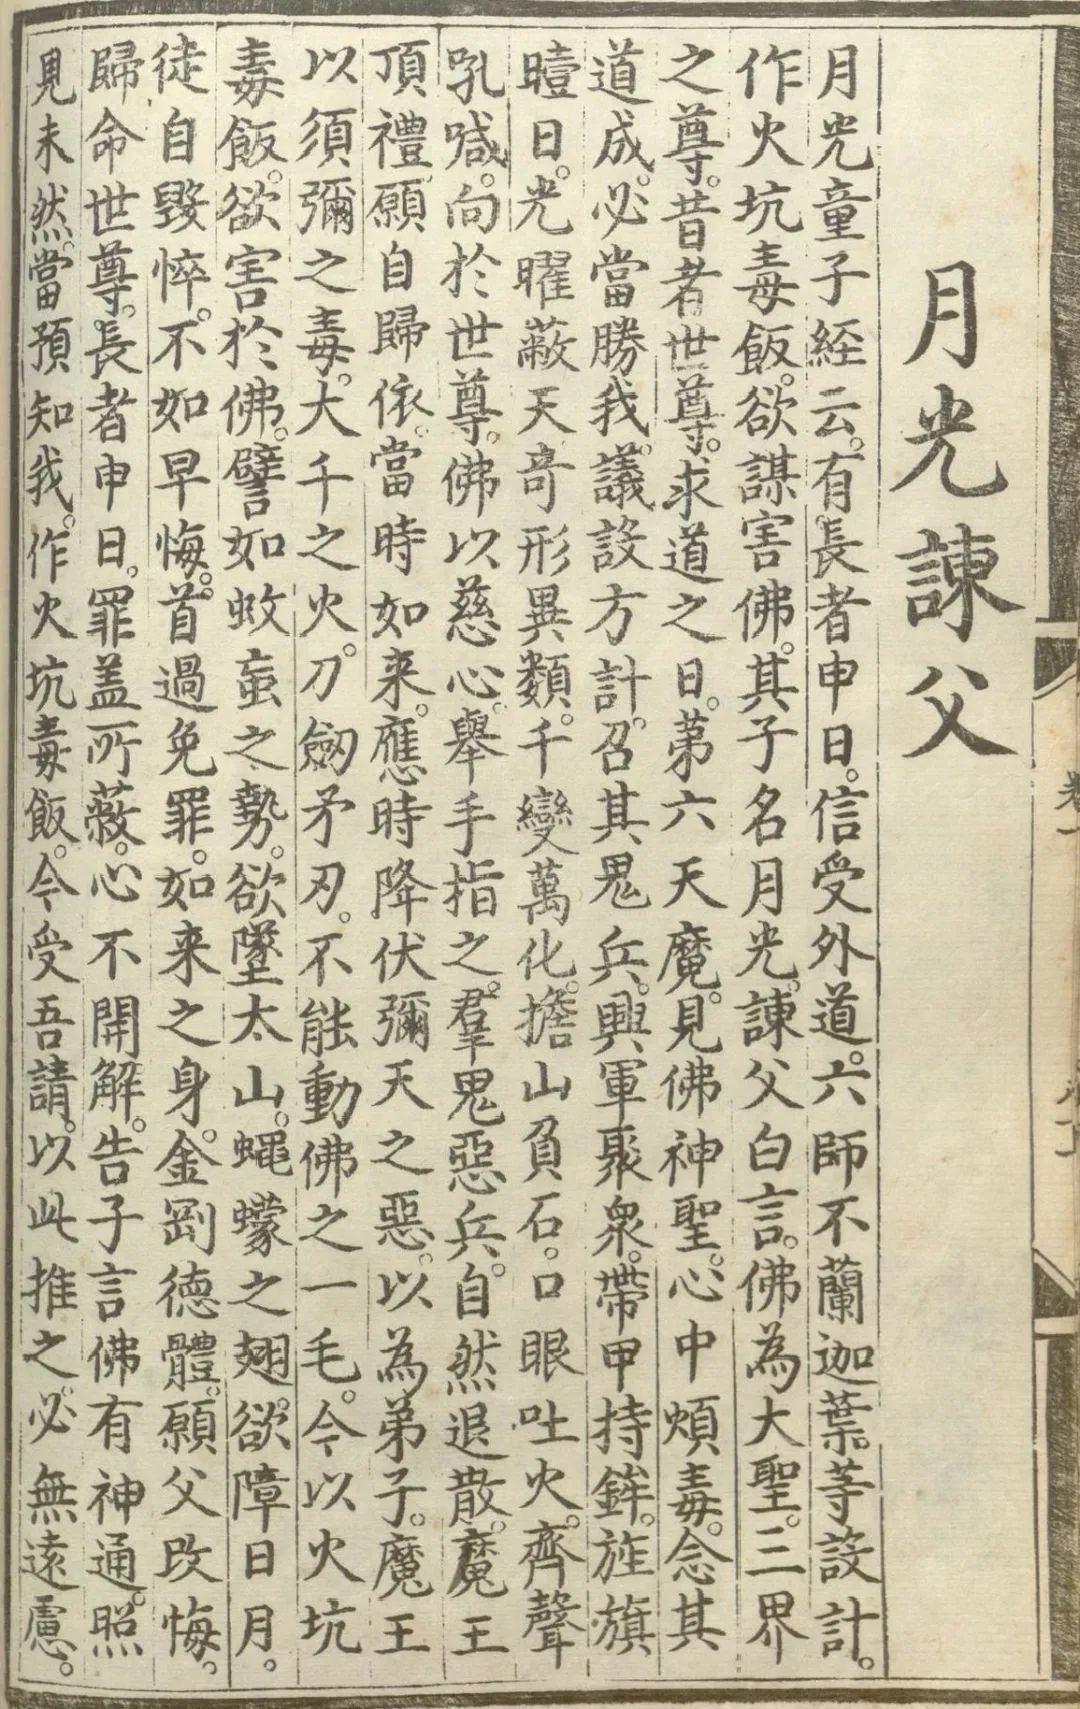 月光諫父
月光童子経云。有長者申日。信受外道。六師不蘭迦葉。等設計。
作火坑毒飯。欲謀害佛。其子名月光。諫父白言。佛為大聖。三界
之尊。昔者世尊。求道之日。第六天魔。見佛神聖。心中煩毒。念其
道成。必當勝我。議設方計。召其鬼兵。興軍聚衆。帶甲持鉾。旌旗
曀日。光曜蔽天奇形異類。千變萬化。擔山負石。口眼吐火。齊聲
吼喊。向於世尊。佛以慈心。舉手指之。羣鬼惡兵。自然退散。魔王
頂禮願自歸依。當時如来。應時降伏彌天之惡。以為弟子。魔王
以須彌之毒。大千之火。刀劒矛刃。不能動佛之一毛。今以火坑
毒飯。欲害於佛。譬如蚊䖟之勢。欲墜太山。蠅蠓之翅。欲障日月。
徒自毀悴。不如早悔。首過免罪。如来之身。金剛德體。願父改悔。
歸命世尊。長者申日。罪盖所蔽。心不開解。告子言佛有神通。照
見未然。當預知我。作火坑毒飯。今受吾請。以此推之。必無遠慮。